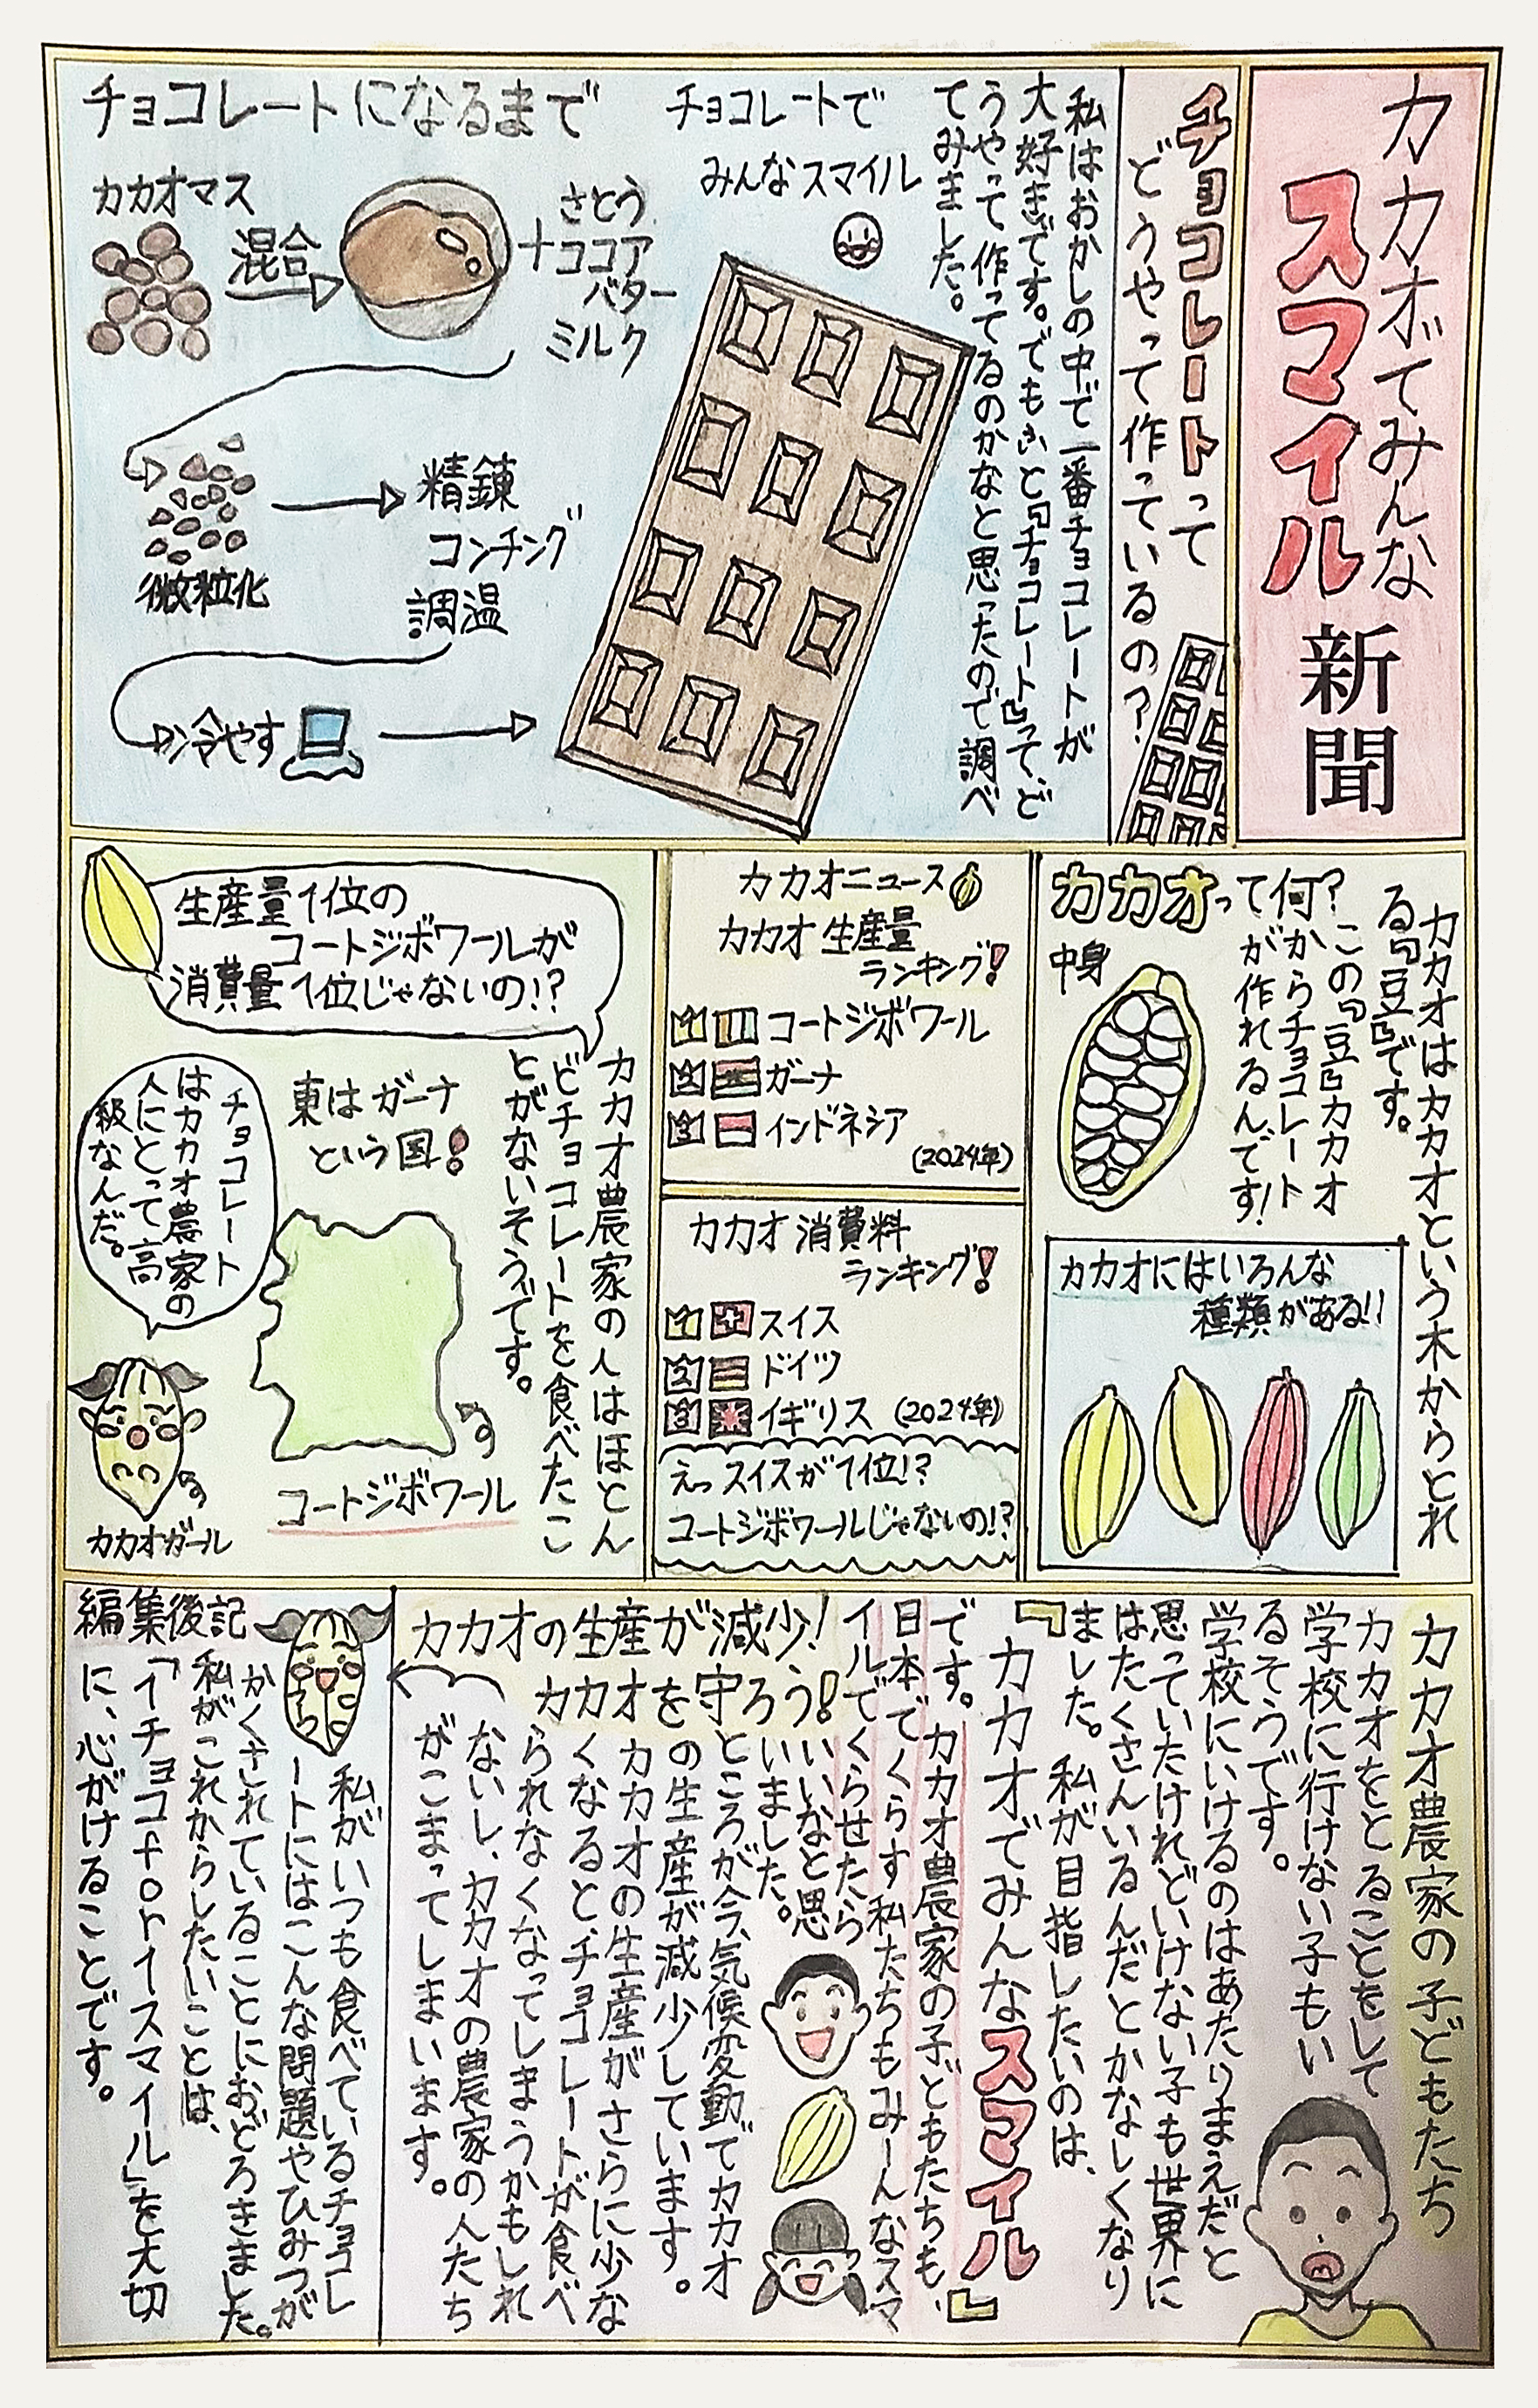 カカオでみんな
スマイル
新聞
チョコレートって
どうやって作っているの？
私はおかしの中で一番チョコレートが
大好きです。でもふと『チョコレート』って、ど
うやって作ってるのかなと思ったので調べ
てみました。
チョコレートで
みんなスマイル
チョコレートになるまで
カカオマス
混合
さとう
＋ココア
バター
ミルク
微粒化
精錬
コンチング
調温
冷やす
カカオって何？
カカオはカカオという木からとれ
る『豆』です。
この『豆』カカオ
何からチョコレート
が作れるんです！
中身
カカオにはいろんな
種類がある!!
カカオニュース
カカオ生産量
ランキング！
1 コートジボワール
2 ガーナ
3 インドネシア
(2024年)
カカオ消費料
ランキング！
1 スイス
2 ドイツ
3 イギリス (2024年)
えっスイスが1位!?
コートジボワールじゃないの!?
生産量1位の
コートジボワールが
消費量1位じゃないの!?
カカオ農家の人はほとん
どチョコレートを食べたこ
とがないそうです。
東はガーナ
という国！
コートジボワール
チョコレート
はカカオ農家の
人にとって高
級なんだ。
カカオガール
カカオ農家の子どもたち
カカオをとることをして
学校に行けない子もい
るそうです。
学校にいけるのはあたりまえだと
思っていたけれどいけない子も世界に
はたくさんいるんだとかなしくなり
ました。私が目指したいのは、
『カカオでみんなスマイル』
です。カカオ農家の子どもたちも、
日本でくらす私たちもみーんなスマ
イルでくらせたら
いいなと思
いました。
カカオの生産が減少！
カカオを守ろう！
ところが今、気候変動でカカオ
の生産が減少しています。
カカオの生産がさらに少な
くなると、チョコレートが食べ
られなくなってしまうかもしれ
ないし、カカオの農家の人たち
がこまってしまいます。
編集後記
私がいつも食べているチョコレ
ートにはこんな問題やひみつが
かくされていることにおどろきました。
私がこれからしたいことは、
「1チョコfor1スマイル」を大切
に、心がけることです。